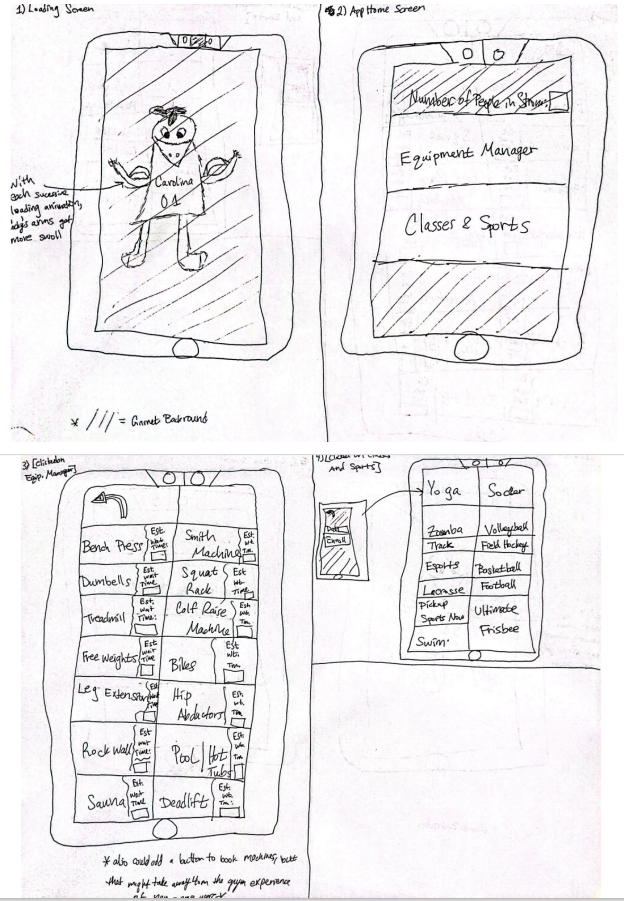 1) Loading Screen
With
each sucessive
loading animation,
arms get
more swoll
Carolina
01
* /// = Garnet Backround
2) App Home Screen
Number of People in Strom:
Equipment Manager
Classes & Sports
3) [Clicked on
Equip. Manager]
Bench Press
Est.
Wait
Time:
Smith
Machine
Est.
Wt.
Tm.
Dumbells
Est.
wait
Time:
Squat
Rack
Est
Wt.
Time:
Treadmill
Est.
wait
Time:
Calf Raise
Machine
Est.
Wt.
Tm:
Free weights
Est
Wait
Time
Bikes
Est.
Wt.
Tm:
Leg Extension
Est
Wait
Time
Hip
Abductors
Est.
wt.
Tm
Rock Wall
Est
wait
Time:
Pool | Hot
Tubs
Est.
Wt.
Tm
Sauna
Est.
Wait
Time
Deadlift
Est.
Wt.
Tm:
* also could add a button to book machines, but
that might take away from the gym experience
And Sports]
Enroll
Yoga
Soccer
Zoomba
Volleyball
Track
Field Hockey
Esports
Basketball
Lacrosse
Football
Pickup
Sports Now
Ultimate
Frisbee
Swim